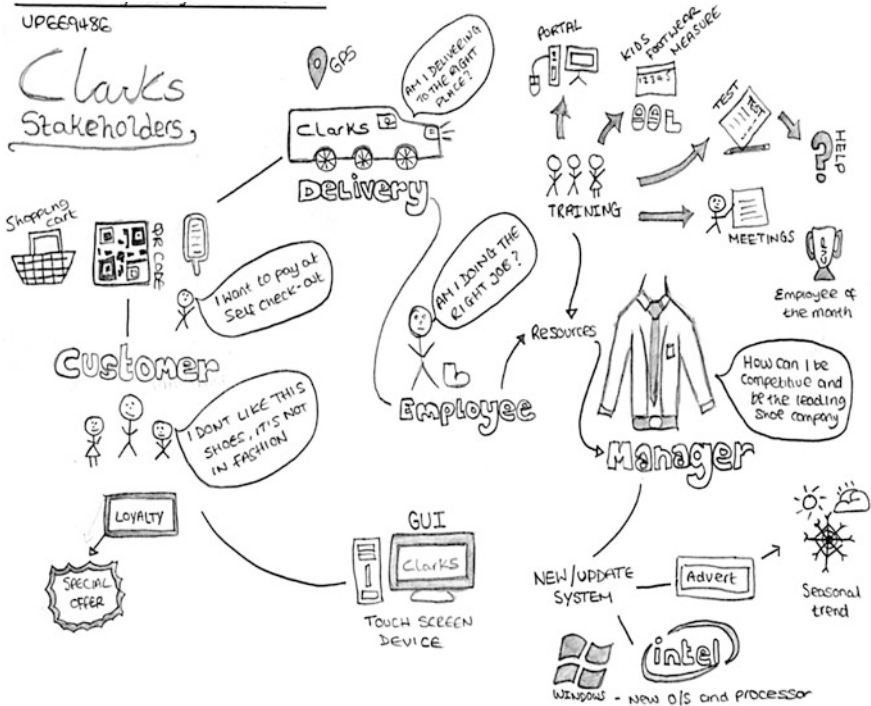 UP669486
Clarks
Stakeholders
GPS
AM I DELIVERING
TO THE RIGHT
PLACE?
Clarks
DELIVERY
PORTAL
KIDS FOOTWEAR
MEASURE
12345
TEST
TEST
HELP
TRAINING
MEETINGS
CUP
Employee of
the month
Shopping
cart
QR CODE
I want to pay at
Self check-out
Customer
I DONT LIKE THIS
SHOES, IT'S NOT
IN FASHION
LOYALTY
SPECIAL
OFFER
AM I DOING THE
RIGHT JOB?
EMPLOYEE
Resources
How can I be
competitive and
be the leading
shoe company
Manager
GUI
Clarks
TOUCH SCREEN
DEVICE
NEW/UPDATE
SYSTEM
Advert
Seasonal
trend
intel
WINDOWS - NEW O/S and processor